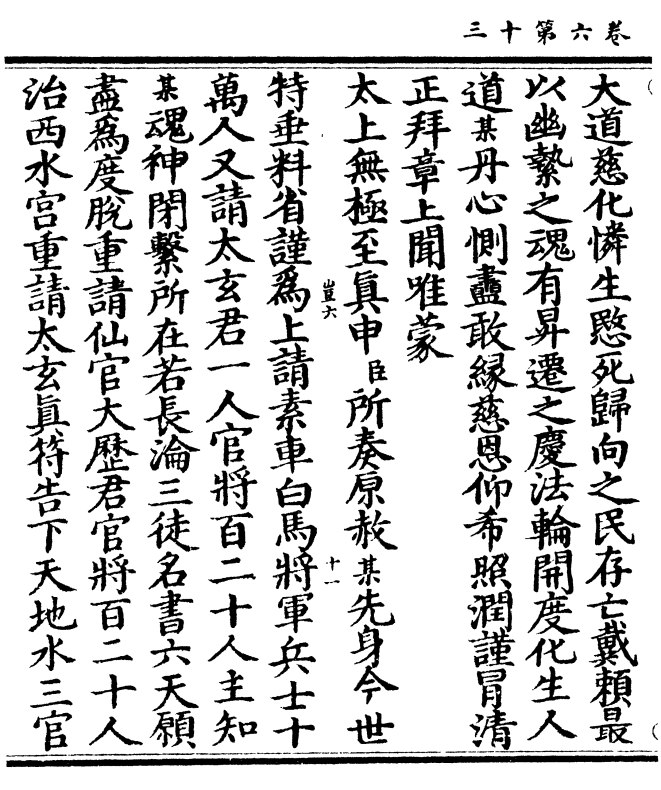 三十第六卷
大道慈化憐生愍死歸向之民存亡戴賴最
以幽縶之魂有昇遷之慶法輪開度化生人
道某丹心惻盡敢緣慈恩仰希照潤謹冐清
正拜章上聞唯蒙
太上無極至眞申臣所奏原赦某先身今世
特垂料省謹爲上請素車白馬將軍兵士十
萬人又請太玄君一人官將百二十人主知
某魂神閉繫所在若長淪三徒名書六天願
盡爲度脫重請仙官大歷君官將百二十人
治西水宮重請太玄眞符告下天地水三官
豈六
十一